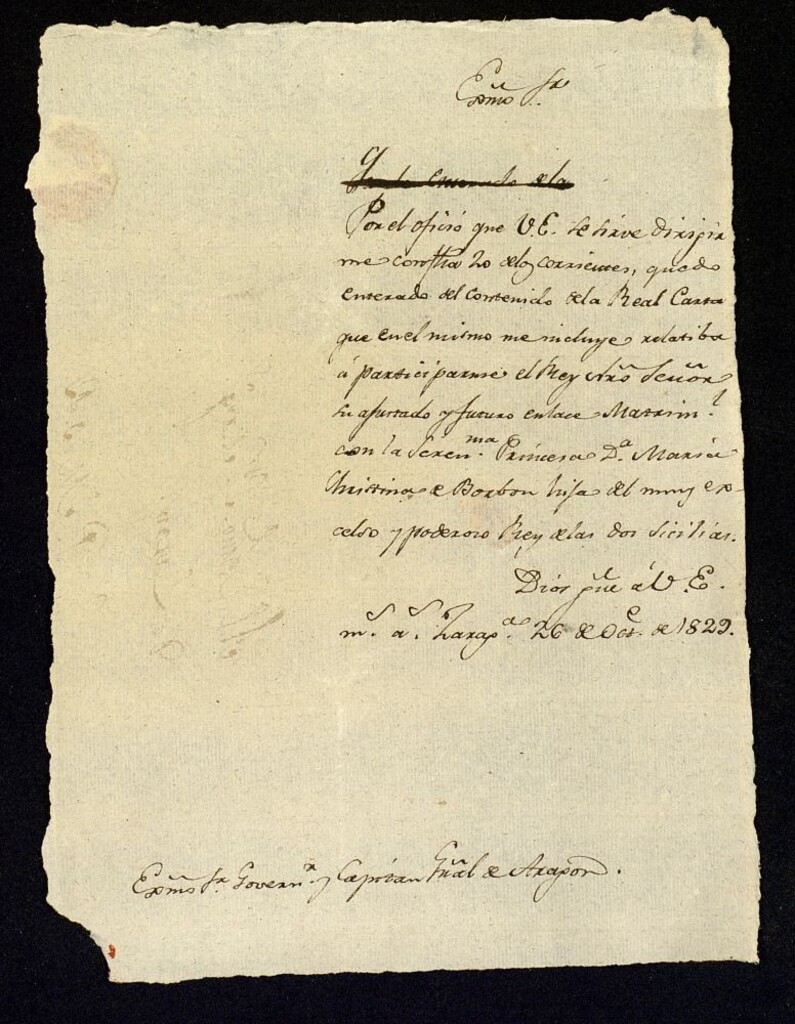 Exmo Sr.
Por el oficio que V.E. se sirve dirigir
me con fha 20 delos corrientes, quedo
enterado del contenido dela Real Carta
que en el mismo me incluye relatiba
á participarme el Rey Ntrõ Señor
su ajustado y futuro enlace Matriml.
con la Serenma. Princesa Da. Maria
Christina de Borbon hija del muy ex-
celso y poderoso Rey delas dos Sicilias.
Dios gue á V.E.
ms. as. Zaragoa. 26 de Octe. de 1829.
Exmo Sr. Governr. y Capitan Gnãl de Aragon.